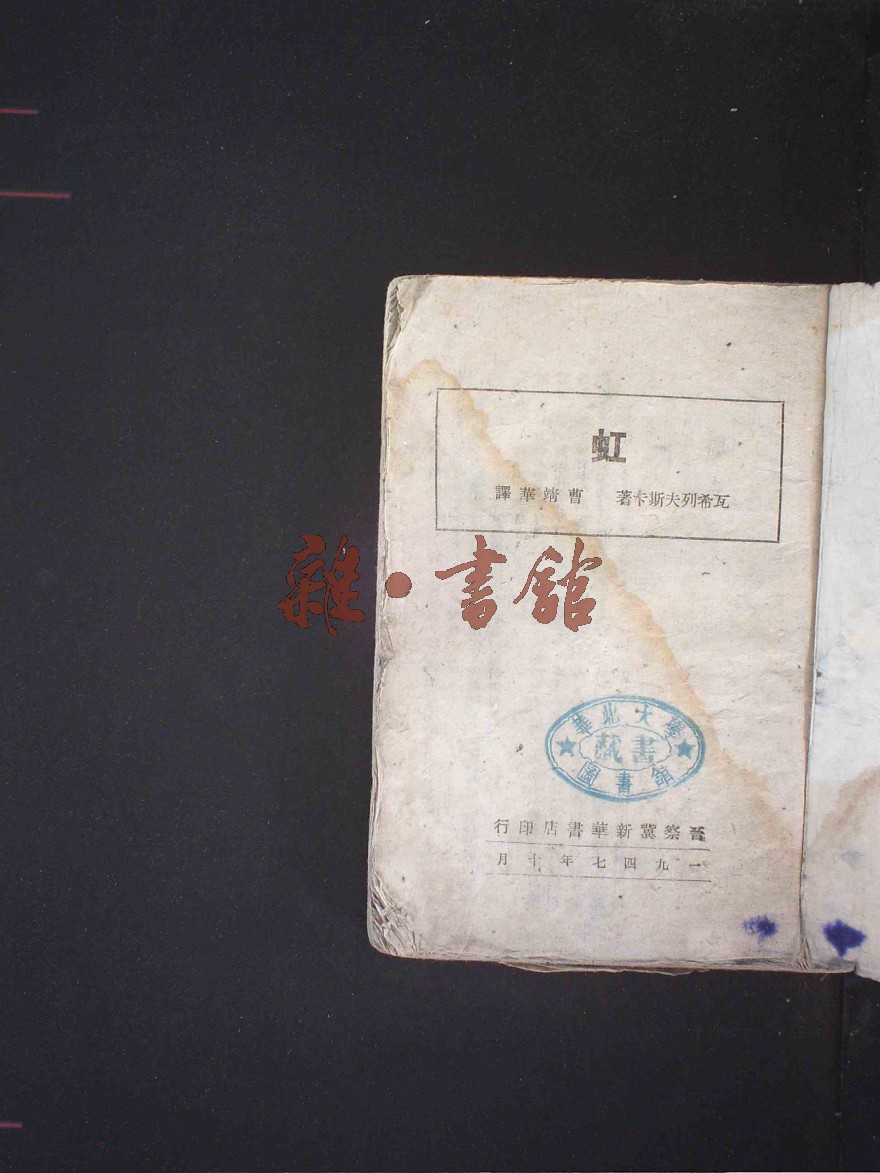 虹
瓦希列夫斯卡著 曹靖華譯
雜·書館
華北大學
藏書
圖書館
晉察冀新華書店印行
一九四七年十月